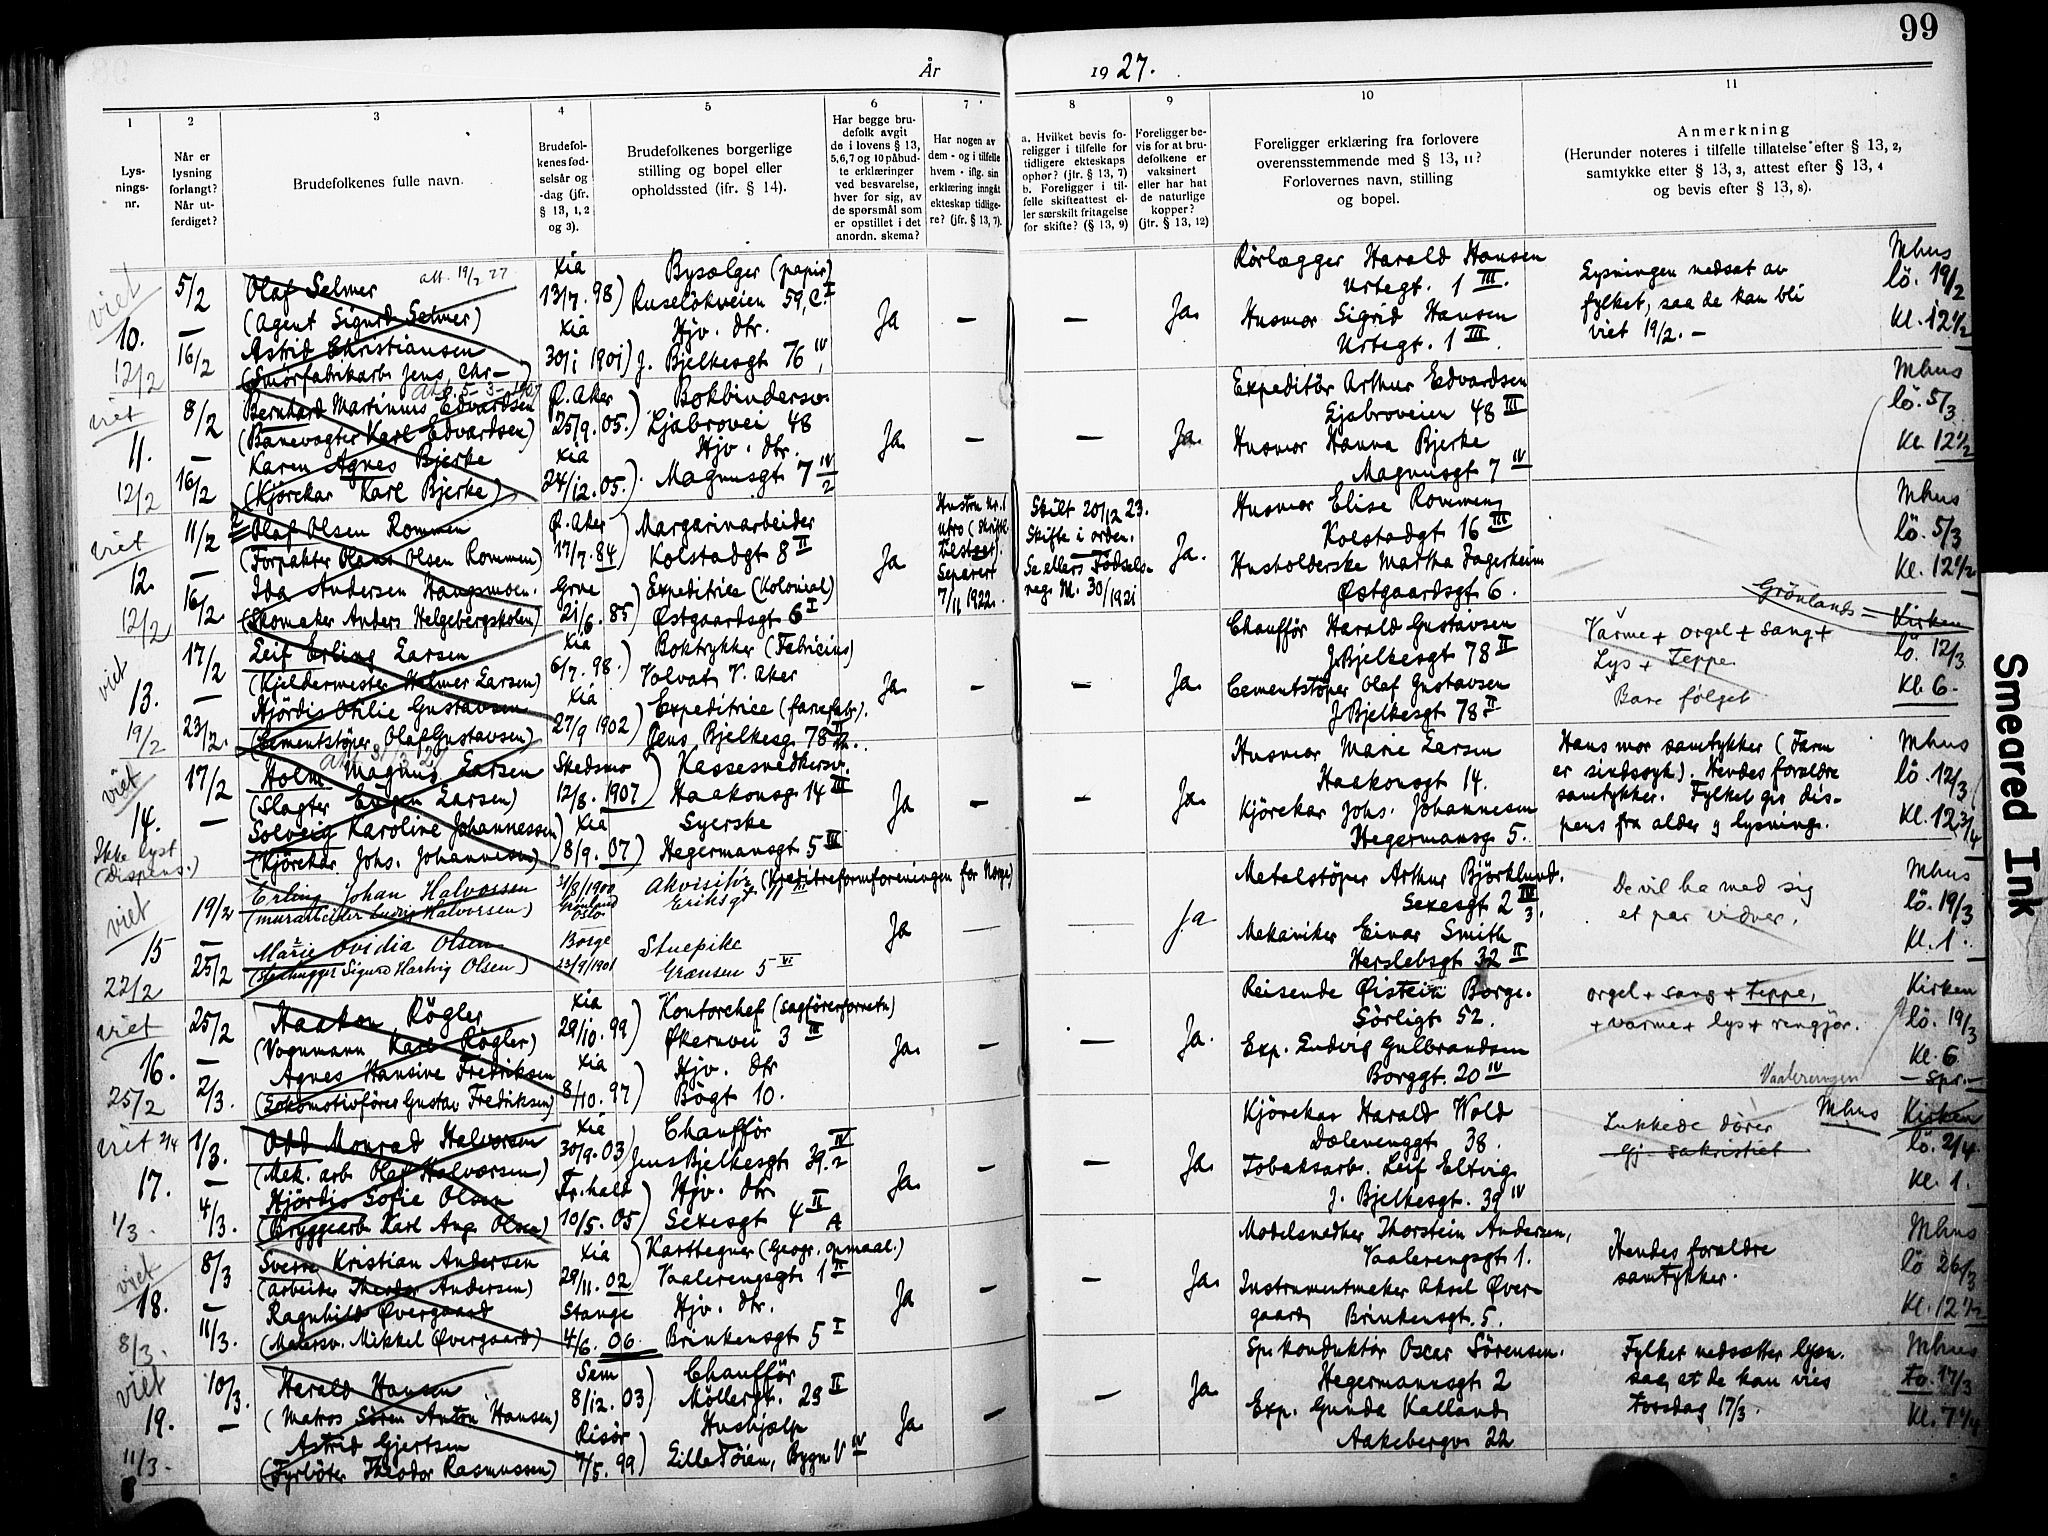 99
År 1927.
1 2 3 4 5 6 7 8 9 10 11
Lys-
nings-
nr.
Når er
lysning
forlangt?
Når ut-
ferdiget?
Brudefolkenes fulle navn.
Brudefol-
kenes fød-
selsår og
-dag (jfr.
§ 13, 1, 2
og 3).
Brudefolkenes borgerlige
stilling og bopel eller
opholdssted (jfr. § 14).
Har begge bru-
defolk avgit
de i lovens § 13,
5,6,7 og 10 påbud-
te erklæringer
ved besvarelse,
hver for sig, av
de spørsmål som
er opstillet i det
anordn. skema?
Har nogen av
dem - og i tilfelle
hvem - iflg. sin
erklæring inngåt
ekteskap tidlige-
re? (jfr. § 13, 7).
a. Hvilket bevis fo-
religger i tilfelle for
tidligere ekteskaps
ophør? (jfr. § 13, 7)
b. Foreligger i til-
felle skifteattest el-
ler særskilt fritagelse
for skifte? (§ 13, 9)
Foreligger be-
vis for at bru-
defolkene er
vaksinert
eller har hat
de naturlige
kopper?
(jfr. § 13, 12)
Foreligger erklæring fra forlovere
overensstemmende med § 13, 11?
Forlovernes navn, stilling
og bopel.
Anmerkning
(Herunder noteres i tilfelle tillatelse efter § 13, 2,
samtykke etter § 13, 3, attest efter § 13, 4
og bevis efter § 13, 8).
viet
10.
12/2
5/2
—
16/2
Olaf Selmer att. 19/2 27
(Agent Sigurd Selmer)
Astrid Christiansen
(Smörfabrikarb. Jens Chr—)
Kia
13/7. 98)
Kia
30/1 1901)
Bysælger (papir)
Ruselökveien 59, C. I
Hjv. dtr.
J. Bjelkesgt 76 IV
Ja
—
—
Ja.
Rörlægger Harald Hansen
Urtegt. 1 III.
Husmor Sigrid Hansen
Urtegt. 1 III.
Lysningen nedsat av
fylket, saa de kan bli
viet 19/2. —
Mhus
lö. 19/2
Kl. 12 1/2
viet
11.
12/2
8/2
—
16/2
att. 5-3-1927
Bernhard Martinius Edvardsen
(Banevogter Karl Edvardsen)
Karen Agnes Bjerke
(Kjörekar Karl Bjerke)
Ø. Aker
25/9. 05.)
Kia
24/12. 05.)
Bokbindersv.
Ljabrovei 48
Hjv. dtr.
Magnusgt 7 IV/2
Ja.
—
—
Ja.
Expeditör Arthur Edvardsen
Ljabroveien 48 III
Husmor Hanna Bjerke
Magnusgt 7 IV
Mhus
lö. 5/3
Kl. 12 1/2
viet
12.
12/2
11/2
—
16/2
Olaf Olsen Rommen
(Forpakter Olaus Olsen Rommen)
Ida Andersen Haugsmoen.
(Skomaker Anders Helgebergskolen)
Ø. Aker
17/7. 84)
Grue
21/6. 85)
Margarinarbeider
Kolstadgt 8 II
Expeditrice (Kolonial)
Østgaardsgt 6 I
Ja
Hustru Nr. 1
utro (skriftl.
tilstaat).
Separert
7/11 1922.
Skilt 20/12 23.
Skifte i orden.
Se ellers Fødsels-
reg. M. 30/1921
Ja.
Husmor Elise Rommen
Kolstadgt 16 III
Husholderske Martha Fagerheim
Østgaardsgt 6.
Mhus
lö. 5/3
Kl. 12 1/2.
viet
13.
19/2
17/2
23/2.
Leif Erling Larsen
(Kjeldermester Halmer Larsen)
Hjördis Otilie Gustavsen
(Cementstöper Olaf Gustavsen)
Kia
6/7. 98.)
Kia
27/9 1902)
Boktrykker (Fabricius)
Volvat, V. Aker
Expeditrice (farvefabr.).
Jens Bjelkesg. 78 II
Ja.
—
—
Ja.
Chaufför Harald Gustavsen
J. Bjelkesgt 78 II
Cementstöper Olaf Gustavsen
J. Bjelkesgt 78 II
Grönlands =
Varme + orgel + sang +
Lys + Teppe
Bare følget
Kirken
lö. 12/3
Kl. 6.
viet
14.
Ikke lyst
(Dispens.)
17/2
—
Holm Magnus Larsen
(Slagter Eugen Larsen)
Solveig Karoline Johannessen
(Kjörekar Johs. Johannesen)
Skedsmo
12/8. 1907)
Kia
8/9. 07)
Kassesnedkersv.
Haakonsg. 14 III
Syerske
Hegermansgt 5 III
Ja
—
—
Ja.
Husmor Marie Larsen
Haakonsgt 14.
Kjörekar Johs. Johannesen
Hegermansg 5.
Hans mor samtykker (Farm
er sindssyk). Hendes foreldre
samtykker. Fylket gir dis-
pens fra alder og lysning.
Mhus
lö. 12/3
Kl. 12 3/4
viet
15
22/2
19/2
—
25/2
Erling Johan Halvorsen
(murarbeider Ludvig Halvorsen)
Marie Ovidia Olsen
(Stenhugger Sigurd Hartvig Olsen)
Grönland
Oslo
Borge
23/9/1901
Akvisitör (Kreditreformforeningen for Norge)
Stuepike
Grænsen 5 VI
Ja
—
—
ja
Metalstöper Arthur Björklund.
Sexesgt 2
Mekaniker Einar Smith
Herslebsgt 32 II
De vil ha med sig
et par vidner.
Mhus
lö. 19/3
Kl. 1.
viet
16.
25/2
25/2
—
2/3.
Haakon Rögler
(Vognmann Karl Rögler)
Agnes Hansine Fredriksen
(Lokomotivfører Gustav Fredriksen)
Kia
29/10. 99)
Kia
8/10. 97)
Kontorchef (sagförerforretn)
Økernvei 3 III
Hjv. dtr
Bögt 10.
Ja.
—
—
Ja.
Reisende Øistein Borge.
Sörligt 52.
Exp. Ludvig Gulbrandsen
Borggt. 20 IV
orgel + sang + teppe,
+ varme + lys + rengjör.
Vaalerengen
Kirken
lö. 19/3
Kl. 6
— Spr. —
viet 2/4
17.
1/3.
1/3.
—
4/3.
Odd Monrad Halvorsen
(Mek. arb. Olaf Halvorsen)
Hjördis Sofie Olsen
(Bryggearb. Karl Aug. Olsen)
Kia
30/9. 03)
Fr.hald
10/5. 05)
Chaufför
Jens Bjelkesgt 39 IV/2
Hjv. dtr
Sexesgt 4 II A
Ja.
—
—
Ja.
Kjörekar Harald Wold
Dælenenggt 38.
Tobaksarb. Leif Eltvig
J. Bjelkesgt. 39 IV
Lukkede dører
gj. sakristiet
Mhus Kirken
lö. 2/4
Kl. 1.
viet
18.
8/3.
8/3
—
11/3.
Sverre Kristian Andersen
(Arbeider Theodor Andersen)
Ragnhild Øvergaard
(Malersv. Mikkel Øvergaard)
Kia
29/11. 02)
Stange
4/6. 06
Karttegner (Geogr. opmaal.)
Vaalerengsgt 1 II
Hjv. dtr.
Brinkensgt 5 I
Ja
—
—
Ja.
Modelsnedker Thorstein Andersen,
Vaalerengsgt 1.
Instrumentmaker Aksel Øver-
gaard Brinkensgt. 5.
Hendes foreldre
samtykker.
Mhus
lö 26/3
Kl. 12 1/2
viet
19.
11/3.
10/3.
—
Harald Hansen
(Matros Sören Anton Hansen)
Astrid Gjertsen
(Fyrböter Theodor Rasmussen)
Sem
8/12. 03)
Risör
7/5. 99)
Chaufför
Möllergt. 29 II
Hushjelp
Lille Töien, Bygn. V IV
Ja.
—
—
Ja
Sp. konduktör Oscar Sörensen.
Hegermannsgt 2
Exp. Gunda Kalland,
Aakebergv 22
Fylket nedsætter lysn.
saa at de kan vies
Torsdag 17/3.
Mhus
To. 17/3
Kl. 7 1/4
Smeared Ink